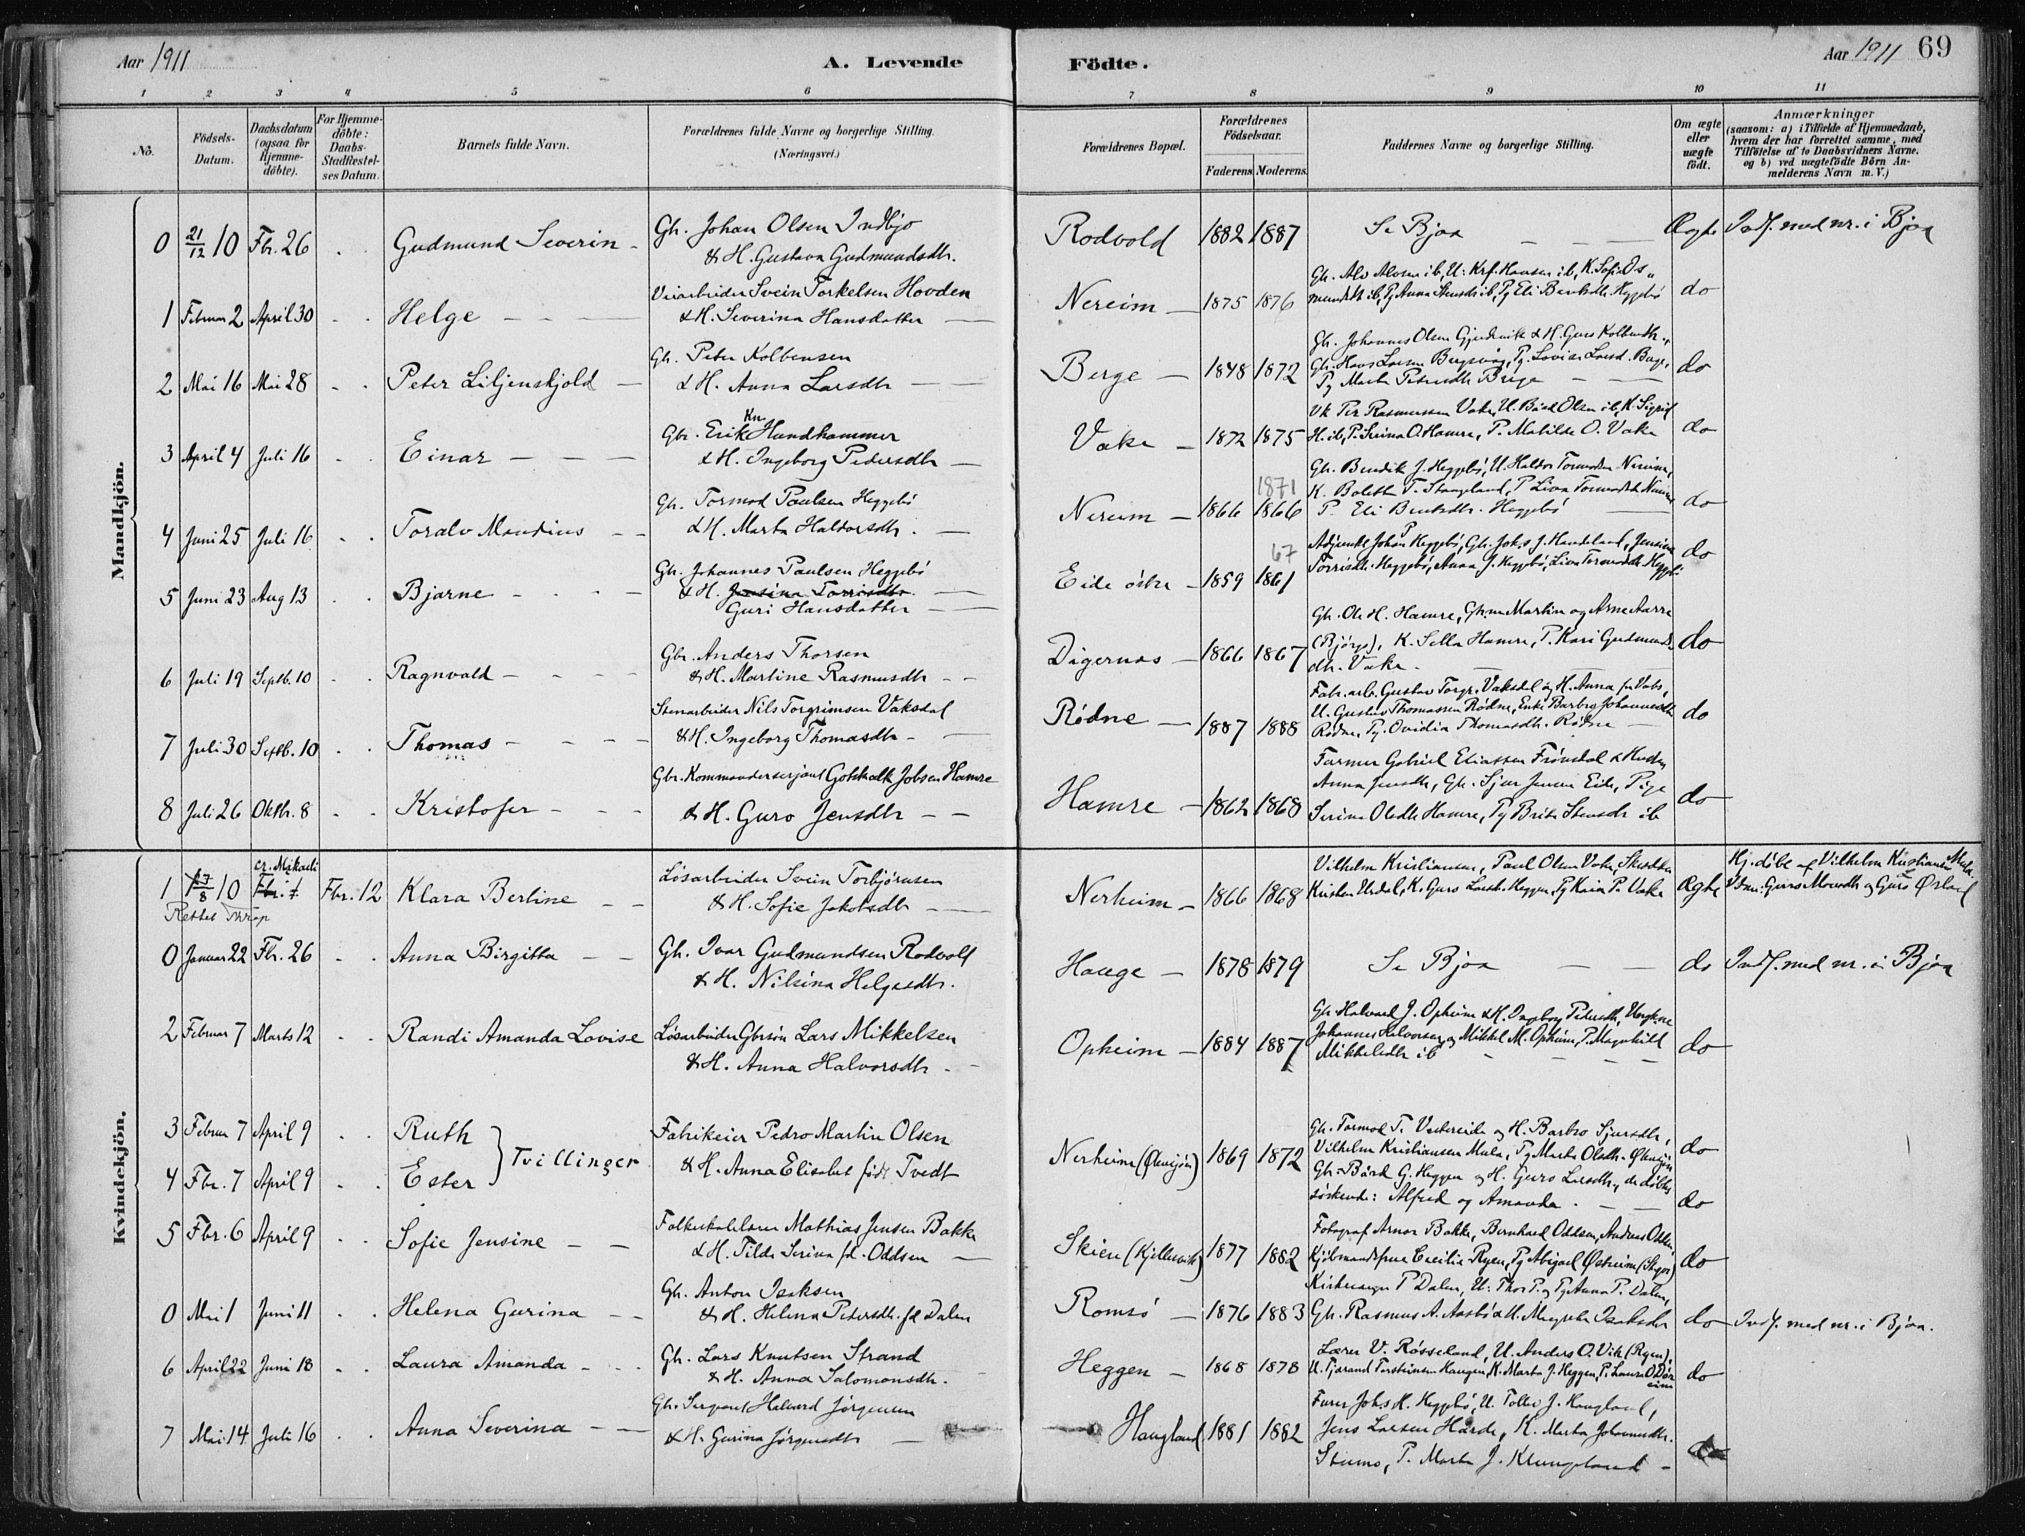 Aar 1911
A. Levende
Födte.
Aar 1911 69
1 2 3 4 5 6 7 8 9 10 11
No.
Födsels-Datum.
Daabsdatum (ogsaa for Hjemmedöbte).
For Hjemmedöbte: Daabs-Stadfæstelses Datum.
Barnets fulde Navn.
Forældrenes fulde Navne og borgerlige Stilling. (Næringsvei.)
Forældrenes Bopæl.
Forældrenes Födselsaar.
Faderens. Moderens.
Faddernes Navne og borgerlige Stilling.
Om ægte eller uægte födt.
Anmærkninger
(saasom: a) i Tilfælde af Hjemmedaab, hvem der har forrettet samme, med Tilföielse af to Daabsvidners Navne. og b) ved uægtefödte Börn Anmelderens Navn m. V.)
Mandkjön.
0 21/12 10 Fbr. 26 Gudmund Severin Gh. Johan Olsen Indbjo
& H. Gustava Gudmundsdtr. Rodvold 1882 1887 Se Bjoa Ægte Indf. med nr. i Bjoa
1 Februar 2 April 30 Helge Veiarbeider Svein Torkelsen Hovden
& H. Severina Hansdatter Nereim 1875 1876 do
2 Mai 16 Mai 28 Peter Liljenskjold Gh. Peter Kolbensen
& H. Anna Larsdtr Berge 1848 1872 Gh. Johannes Olsen Gjerdevik & H. Guro Kolbensdtr.,
do
3 April 4 Juli 16 Einar Gbr. Erik Kn. Hundhammer
& H. Ingeborg Pedersdtr Vake 1872 1875 Per Rasmussen Vake, U. Bård Olsen ib, K. Sigrid
H. ib, P. Serina O. Hamre, P. Matilde O. Vake do
4 Juni 25 Juli 16 Toralv Mandius Gh. Tormod Paulsen Heggebö
& H. Marta Haldorsdtr. Nereim 1866 1871 1866 Gh. Bendik J. Heggebö, U. Haldor Tormodsen Nereim,
K. Bolette T. Stangeland, P. Lina Tormodsdtr Nereim
P. Eli Bentsdtr. Heggebö do
5 Juni 23 Aug 13 Bjarne Gh. Johannes Paulsen Heggebö
& H. Jensina Torrisdtr.
Guri Hansdatter Eide östre 1859 67 1861 Johan P Heggebö, Gh. Johs J. Handeland, Jensine
Torrisdtr. Heggebö, Anna J. Heggebö, Lina Tormodsdtr Heggebö do
6 Juli 19 Septb. 10 Ragnvald Gbr. Anders Thorsen
& H. Martine Rasmusdtr Digernæs 1866 1867 Gh. Ole H. Hamre, Martin og Arne Aarre
K. Sella Hamre, P. Kari Gudmundsdtr. Vake. do
7 Juli 30 Septb. 10 Thomas Stenarbeider Nils Torgrimsen Vaksdal
& H. Ingeborg Thomasdtr Rödne 1887 1888 Fabr. arb. Gustav Torgr. Vaksdal og H. Anna
U. Gustav Thomassen Rödne, Enke Barbro Johannesdtr
Rödne, Pg. Ovidia Thomasdtr. Rödne do
8 Juli 26 Oktbr. 8 Kristofer Gbr. Kommandersersjant Gotskalk Jobsen Hamre
& H. Guro Jensdtr Hamre 1862 1868 Farmer Gabriel Eliassen Frönsdal & Hustru
Anna Jensdtr, Gh. Sjur Jensen Eide, Pige
Serina Olsdtr Hamre, Pg Brita Stensdtr ib do
Kvindekjön.
1 27/8 10 cr. Mikaeli Fbr. 12 Klara Berline Lösarbeider Svein Torbjörnsen
& H. Sofie Jakobsdtr Nerheim 1866 1868 Vilhelm Kristiansen, Paul Olsen Vake,
K. Guro Larsdtr Heggen, Pg Kaia P. Vake Ægte Hj. döbt af Vilhelm Kristiansen Mula.
0 Januar 22 Fbr. 26 Anna Birgitta Gh. Ivar Gudmundsen Rodvolt
& H. Nilsina Helgesdtr. Hauge 1878 1879 Se Bjoa do Indf. med nr. i Bjoa
2 Februar 7 Marts 12 Randi Amanda Lovise Lösarbeider Gbrsön Lars Mikkelsen
& H. Anna Halvorsdtr. Opheim 1884 1887 Gh. Halvard J. Opheim & H. Ingeborg Pedersdtr, Ungkarl
Johannes Halvorsen og Mikkel M. Opheim, P. Magnhild
Mikkelsdtr ib do
3 Februar 7 April 9 Ruth
4 Fbr. 7 April 9 Ester
Tvillinger Fabrikeier Pedro Martin Olsen
& H. Anna Elisabet född Tvedt Nerheim (Ölensjöen) 1869 1872 Gh. Tormod T. Vestereide og H. Barbro Sjursdtr,
Vilhelm Kristiansen Mula, Pg Marta Olsdtr. Ölensjöen
Gh. Bård G. Heggen og H. Guro Larsdtr, de döbtes
söskende: Alfred og Amanda. do
do
5 Fbr. 6 April 9 Sofie Jensine Folkeskolelærer Mathias Jensen Bakke
& H. Tilda Serina fd. Oddsen Skien (Kjellevik) 1877 1882 Fotograf Arnor Bakke, Bernhard Oddsen, Andreas Odden,
Kjöbmandsfrue Cecilie Ryen, Pg Abigael Östreim do
0 Mai 1 Juni 11 Helena Gurina Gh. Anton Isaksen
& H. Helena Pedersdtr. fd Dalen Romsö 1876 1883 Kirkesanger P Dalen, U: Thor P. og Pg Anna P. Dalen,
Gh. Rasmus A. Aasbö & H. Isaksdtr do Indf. med nr. i Bjoa.
6 April 22 Juni 18 Laura Amanda Gh. Lars Knutsen Strand
& H. Anna Salomonsdtr. Heggen 1868 1878 Lærer V. Rösseland, U. Anders O. Vik
U. Tjerand Torsteinsen Haugen, K. Marta J. Heggen, do
7 Mai 14 Juli 16 Anna Severina Gh. Sergeant Halvard Jörgensen
& H. Gurina Jörgensdtr Haugland 1881 1882 Johs H. Heggebö, U. Tollei J. Haugland,
Jens Larsen Harde, K. Marta Johannesdtr.
Stumo, P. Marta J. Klungeland do